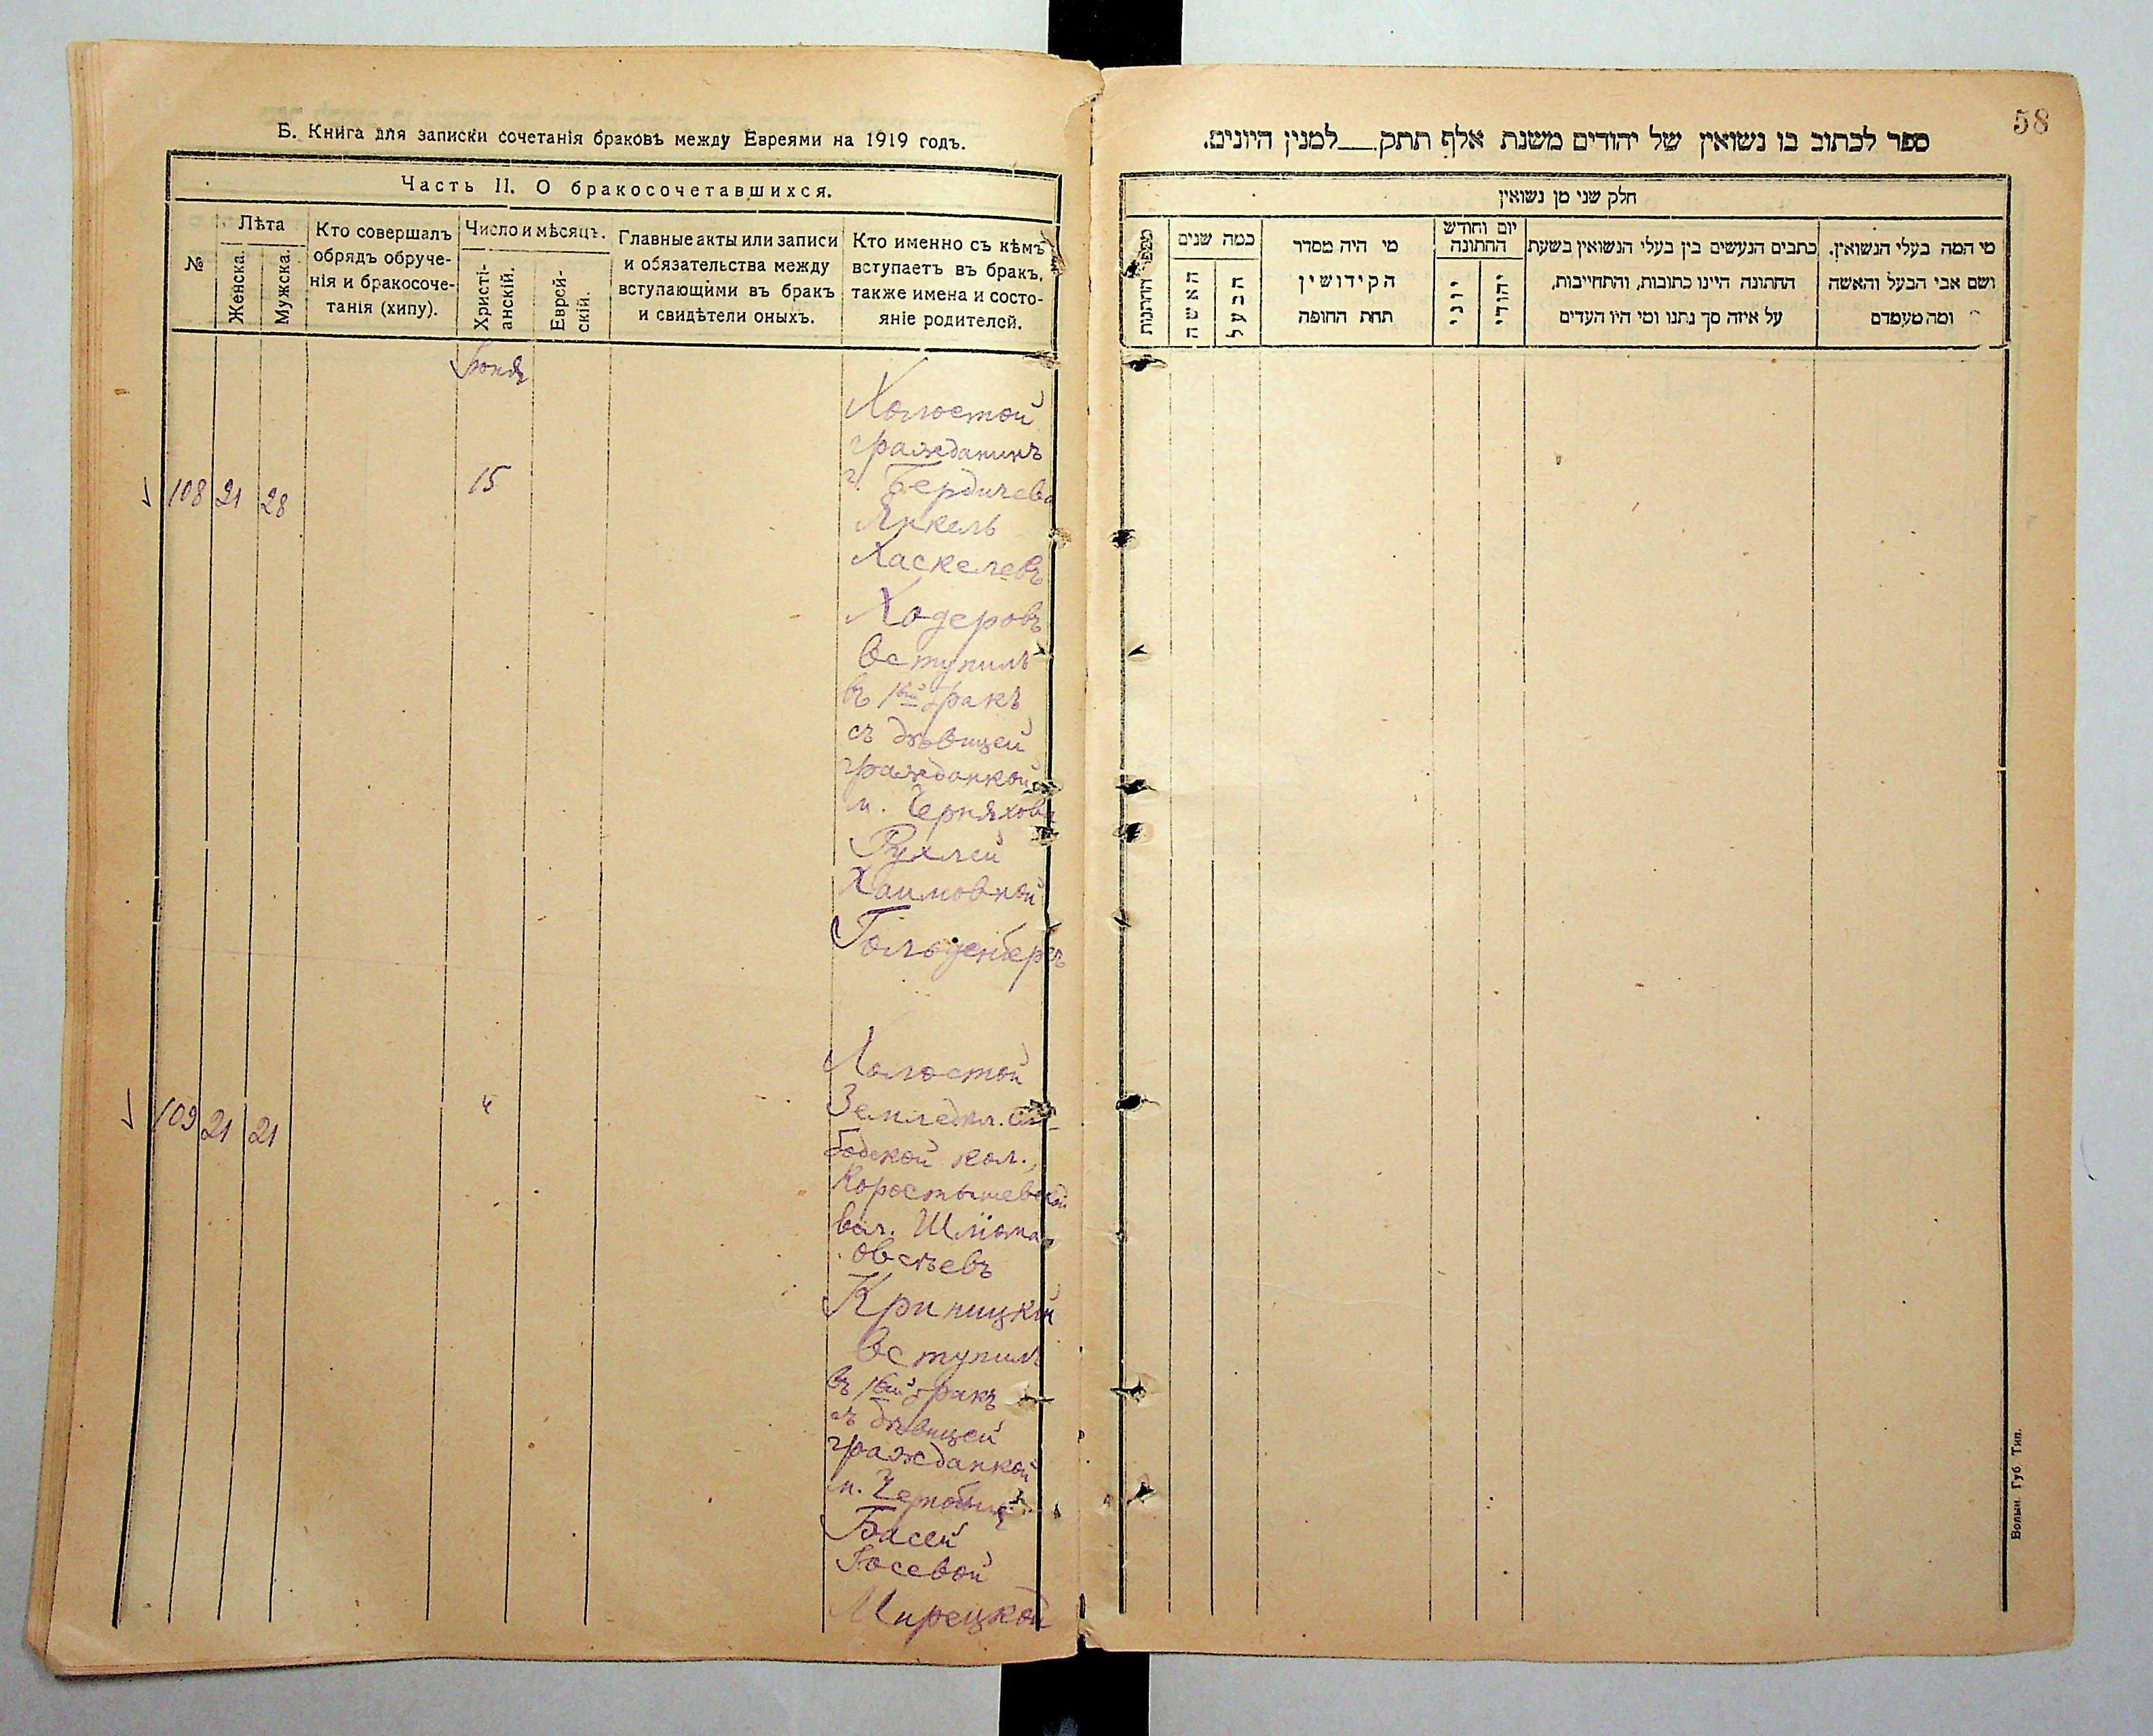 Б. Книга для записки сочетанія браковъ между Евреями на 1919 годъ.
Часть II. О бракосочетавшихся.
№
Лѣта
Женска.
Мужска.
Кто совершалъ
обрядъ обруче-
нія и бракосоче-
танія (хипу).
Число и мѣсяцъ.
Христі-
анскій.
Еврей-
скій.
Главные акты или записи
и обязательства между
вступающими въ бракъ
и свидѣтели оныхъ.
Кто именно съ кѣмъ
вступаетъ въ бракъ,
также имена и состо-
яніе родителей.
Холостой
гражданинъ
г. Бердичева
108 21 28 15
Янкель
Хаскелевъ
Ходеровъ
вступилъ
въ 1ый бракъ
съ дѣвицей
гражданкой
м. Черняхова
Рухлей
Хаимовной
Гольденбергъ
Холостой
109 21 21 4
Земледѣл.
кол.
Коростышевской
вол. Шлiома
Овсѣевъ
Криницкій
вступилъ
въ 1ый бракъ
съ дѣвицей
гражданкой
м.
Басей
Іосевой
Мирецкой
58
ספר לכתוב בו נשואין של יהודים משנת אלף תתק__למנין היונים.
חלק שני מן נשואין
מספר החתנות
כמה שנים
האשה
הבעל
מי היה מסדר
הקידושין
תחת החופה
יום וחודש
החתונה
יוני
יהודי
כתבים הנעשים בין בעלי הנשואין בשעת
החתונה היינו כתובות, והתחייבות,
על איזה סך נתנו ומי היו העדים
מי המה בעלי הנשואין.
ושם אבי הבעל והאשה
ומה מעמדם
Волын. Губ. Тип.